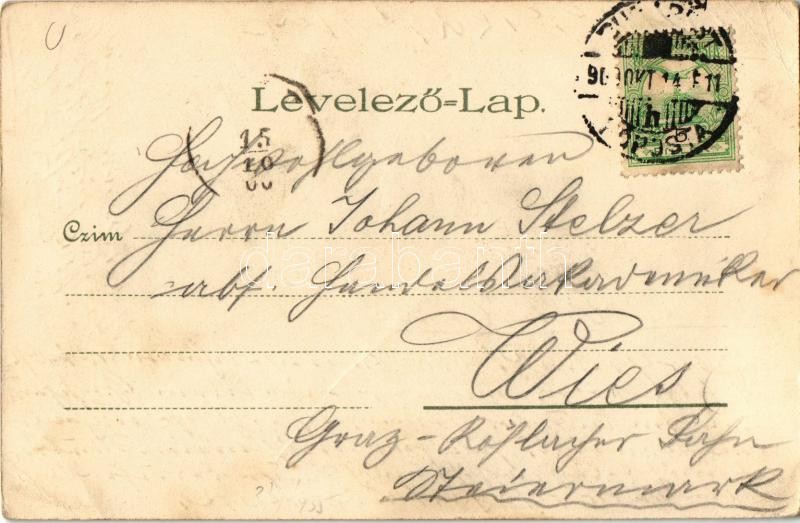 Levelező=Lap.
15
10
Hochwohlgeboren
Czim Herrn Johann Stelzer
abs. Handelsakademiker
Wies
Graz-Köflacher Bahn
Steiermark
darabanth